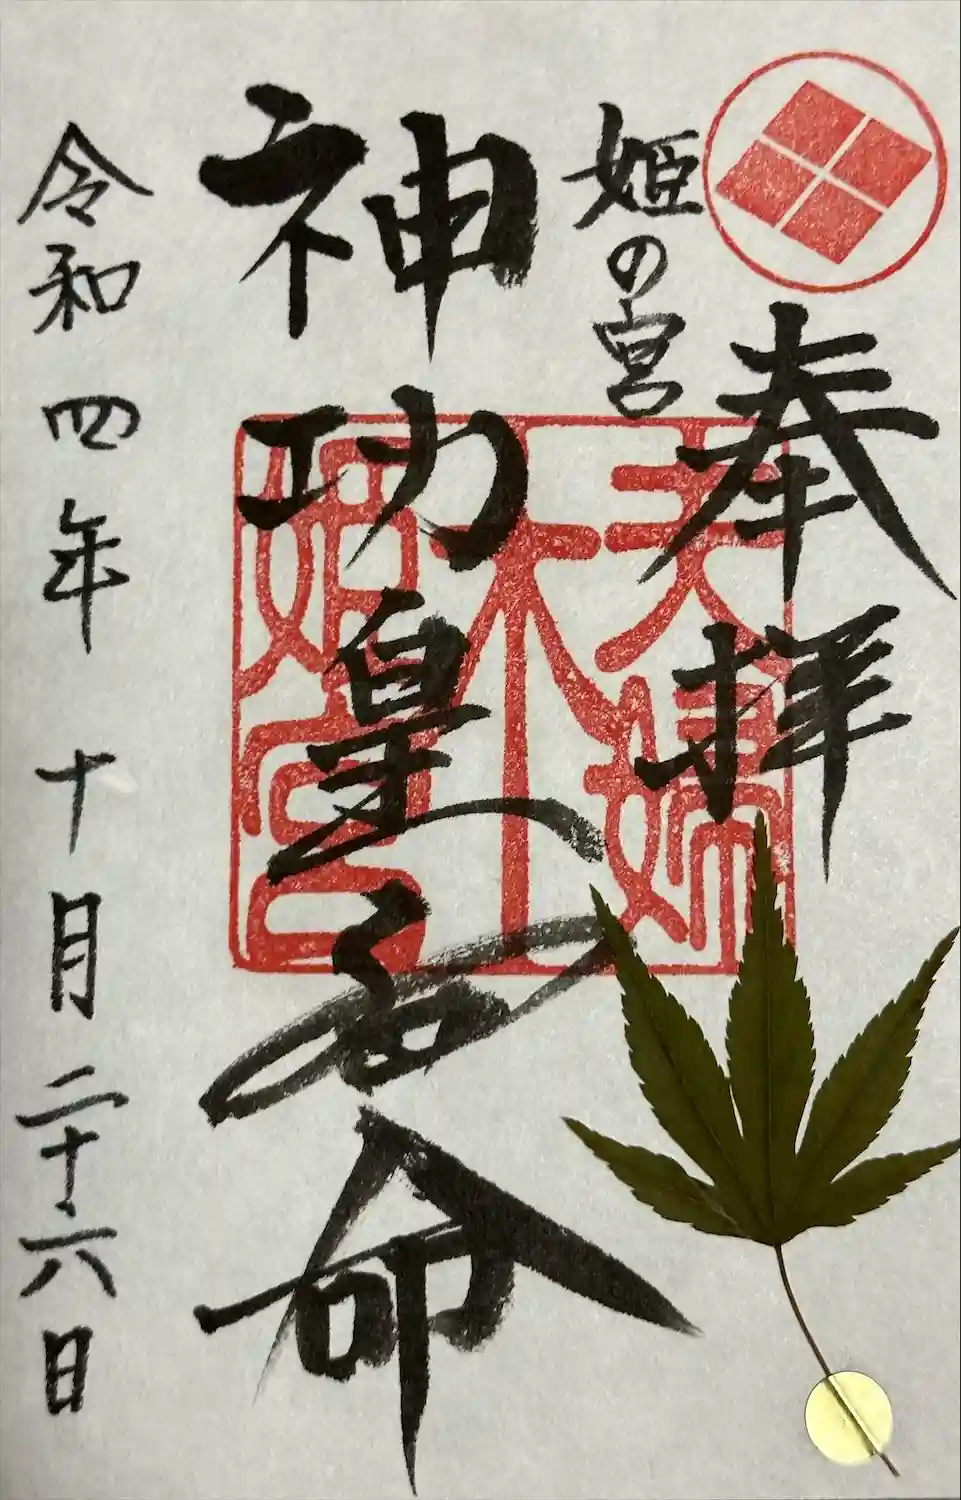 奉拝
姫の宮
神功皇后命
令和四年十月二十六日
夫婦
木
姫宮